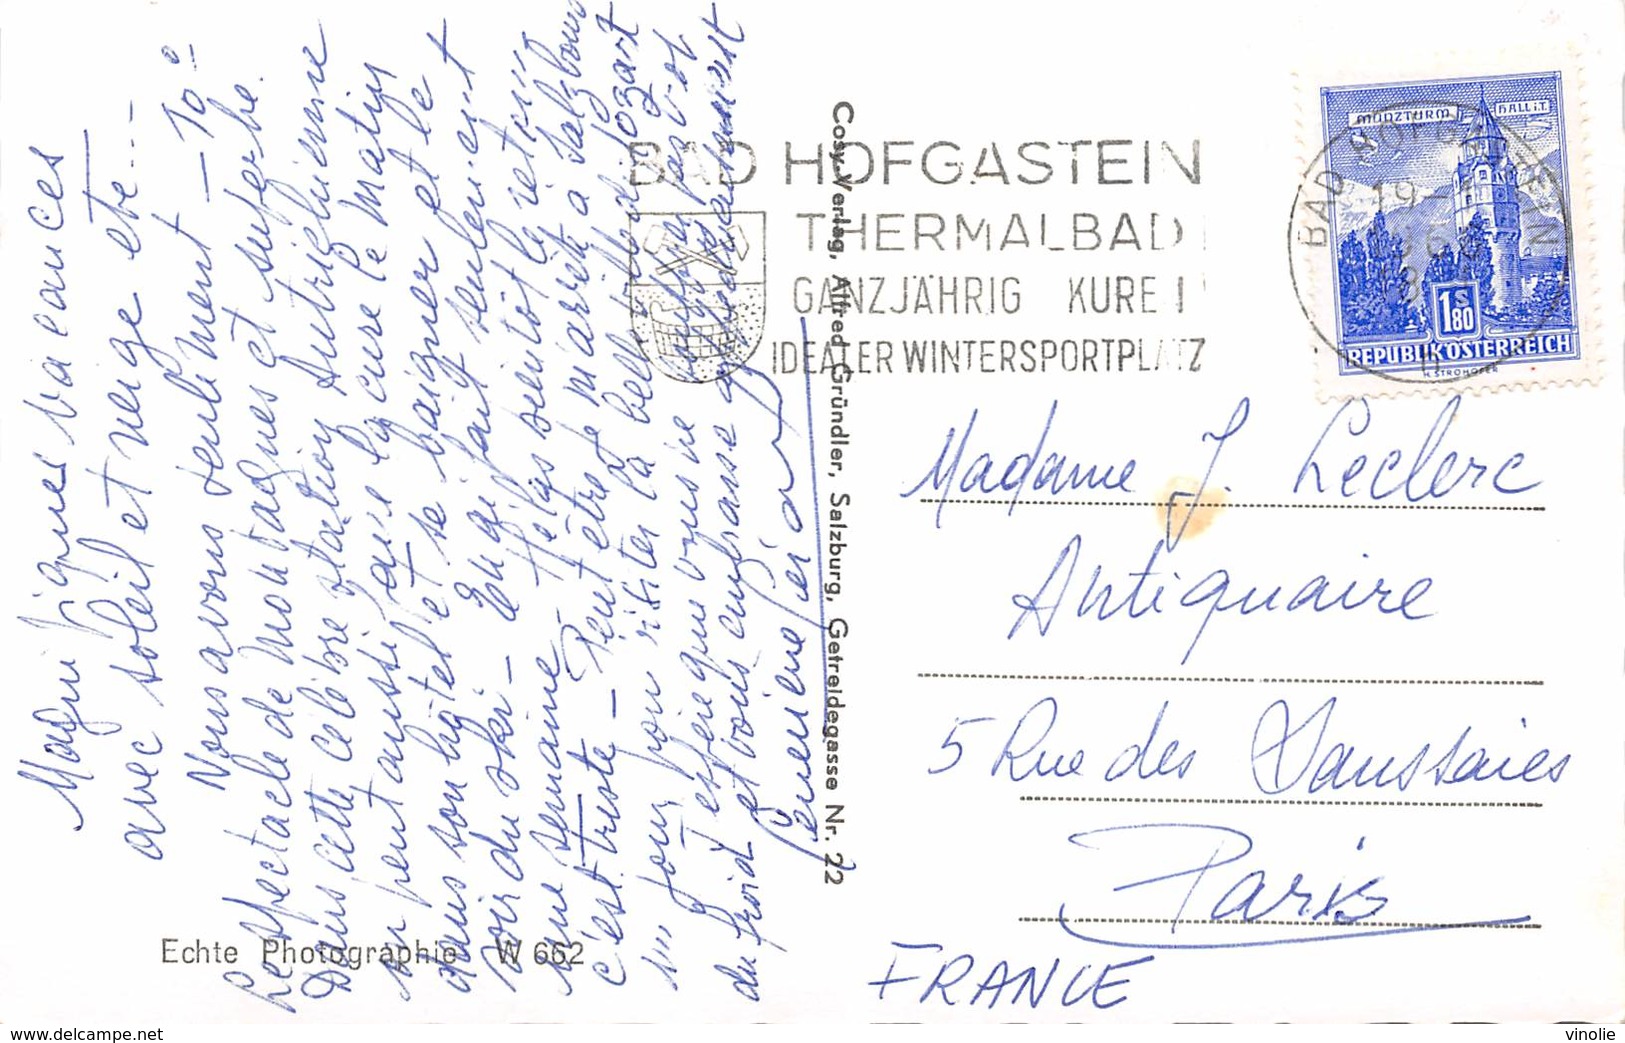 Magnifiques vacances
avec soleil et neige etc...
Nous avons seulement - 10°
Le spectacle de montagnes est superbe.
Dans cette célèbre station Autrichienne
on peut aussi faire la cure le matin
dans son hôtel et se baigner et le
soir du ski - qui fait seulement
une semaine - Hélas bientôt le retour
c'est triste - Peut être m'arrêt à Salzbourg
un jour pour visiter la belle Mozart
J'espère que vous ne
du froid et vous embrasse affectueusement
Echte Photographie W 662
Cosy-Verlag, Alfred Gründler, Salzburg, Getreidegasse Nr. 22
BAD HOFGASTEIN
THERMALBAD
GANZJÄHRIG KURE
IDEALER WINTERSPORTPLATZ
BAD HOFGASTEIN
19
MÜNZTURM HALL i.T.
1 S 80
REPUBLIK ÖSTERREICH
H. STROHOFER
Madame J. Leclerc
Antiquaire
5 Rue des Saussaies
Paris
FRANCE
www.delcampe.net
vinolie